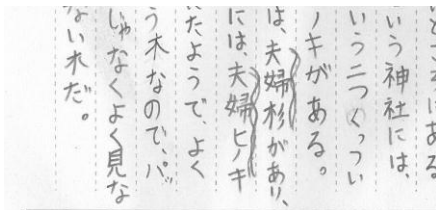 いところにある
いう神社には、
いう二つくっつい
ノキがある。
は、夫婦杉があり、
には、夫婦ヒノキ
いたようで、よく
う木なので、パッ
じゃなくよく見な
ない木だ。